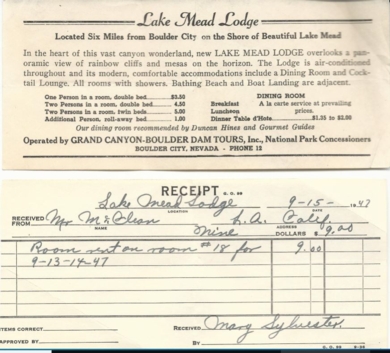 Lake Mead Lodge
Located Six Miles from Boulder City on the Shore of Beautiful Lake Mead
In the heart of this vast canyon wonderland, new LAKE MEAD LODGE overlooks a pan-
oramic view of rainbow cliffs and mesas on the horizon. The Lodge is air-conditioned
throughout and its modern, comfortable accommodations include a Dining Room and Cock-
tail Lounge. All rooms with showers. Bathing Beach and Boat Landing are adjacent.
One Person in a room, double bed $3.50
Two Persons in a room, double bed 4.50
Two Persons in a room, twin beds 5.00
Additional Person, roll-away bed 1.00
DINING ROOM
Breakfast A la carte service at prevailing
Luncheon prices.
Dinner Table d'Hote $1.35 to $2.50
Our dining room recommended by Duncan Hines and Gourmet Guides
Operated by GRAND CANYON-BOULDER DAM TOURS, Inc., National Park Concessioners
BOULDER CITY, NEVADA - PHONE 12
RECEIPT
Lake Mead Lodge 9-15- 1947
LOCATION DATE
RECEIVED FROM Mr. McClean L.A. Calif.
NAME ADDRESS
Nine DOLLARS $ 9.00
Room rent on room #18 for 9.00
9-13-14-47
ITEMS CORRECT RECEIVED Mary Sylvester
APPROVED BY By